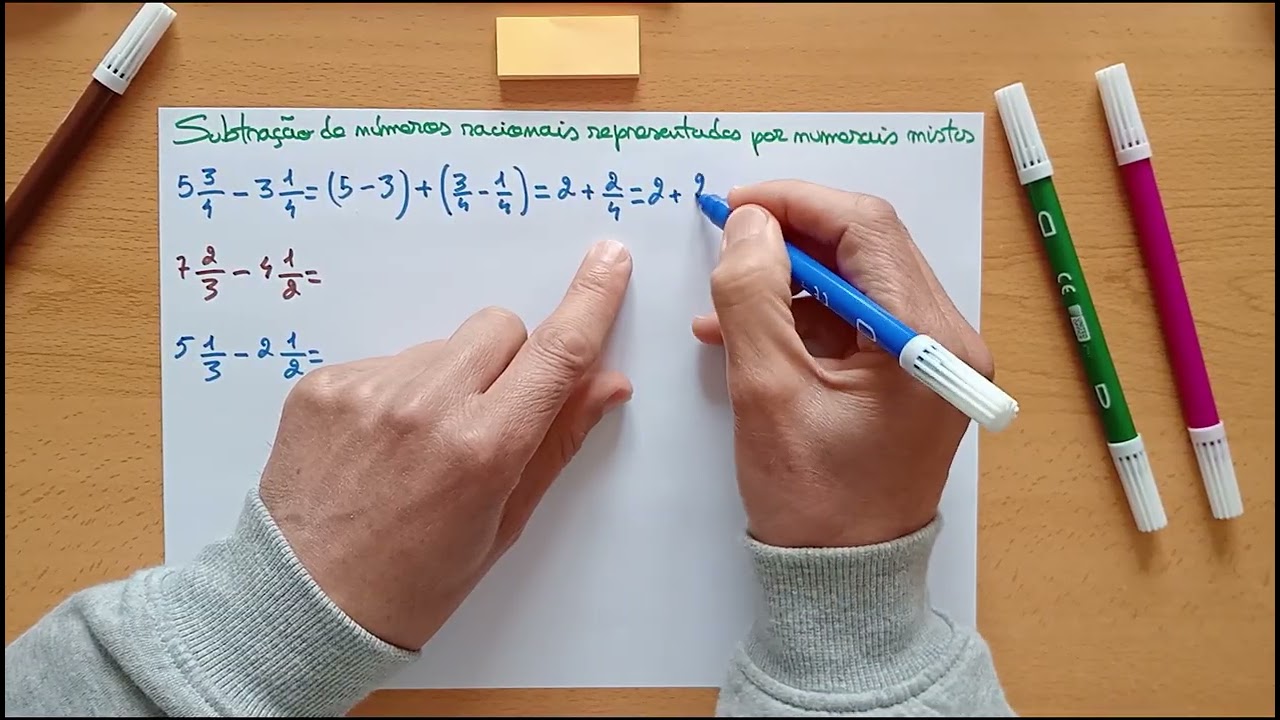 Subtração de números racionais representados por numerais mistos
5 3/4 - 3 1/4 = (5 - 3) + (3/4 - 1/4) = 2 + 2/4 = 2 + 2
7 2/3 - 4 1/2 =
5 1/3 - 2 1/2 =
CE